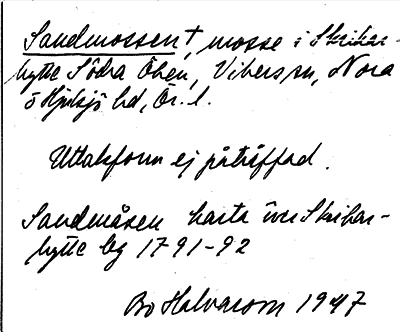 Sandmossen †, mosse i Skrikar-
hytte Södra Öhen, Vikers sn, Nora
o Hjulsjö hd, Ör. l.
Uttalsform ej påträffad.
Sandmåsen karta över Skrikar-
hytte by 1791-92
Bo Halvarson 1947